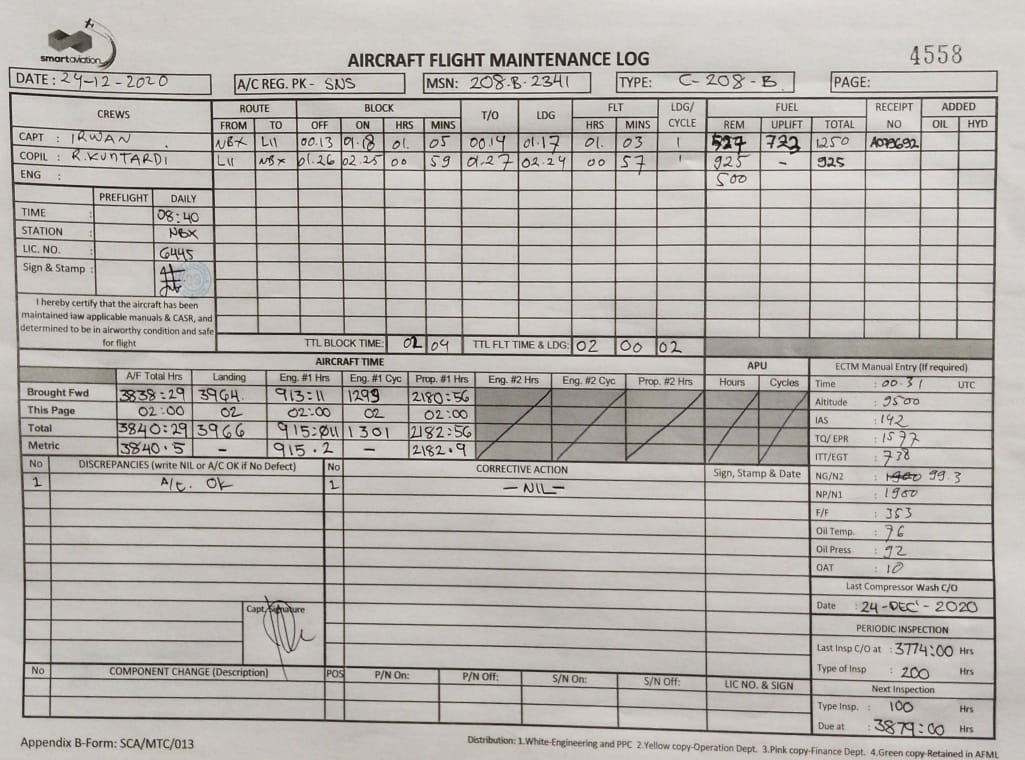 smartaviation
AIRCRAFT FLIGHT MAINTENANCE LOG
4558
DATE : 24-12-2020 A/C REG. PK - SNS MSN: 208-B-2341 TYPE: C-208-B PAGE:
CREWS ROUTE BLOCK T/O LDG FLT LDG/ CYCLE FUEL RECEIPT NO ADDED
FROM TO OFF ON HRS MINS HRS MINS REM UPLIFT TOTAL OIL HYD
CAPT : IRWAN NBX LII 00.13 01.18 01. 05 00.14 01.17 01. 03 1 527 723 1250 A079692
COPIL : R.KUNTARDI LII NBX 01.26 02.25 00 59 01.27 02.24 00 57 1 925 - 925
ENG : 500
PREFLIGHT DAILY
TIME : 08:40
STATION : NBX
LIC. NO. : 6445
Sign & Stamp :
I hereby certify that the aircraft has been
maintained iaw applicable manuals & CASR, and
determined to be in airworthy condition and safe
for flight
TTL BLOCK TIME: 02 04 TTL FLT TIME & LDG: 02 00 02
AIRCRAFT TIME APU ECTM Manual Entry (If required)
A/F Total Hrs Landing Eng. #1 Hrs Eng. #1 Cyc Prop. #1 Hrs Eng. #2 Hrs Eng. #2 Cyc Prop. #2 Hrs Hours Cycles
Brought Fwd 3838:29 3964 913:11 1299 2180:56
This Page 02:00 02 02:00 02 02:00
Total 3840:29 3966 915:011 1301 2182:56
Metric 3840.5 - 915.2 - 2182.9
Time : 00.31 UTC
Altitude : 9500
IAS : 142
TQ/ EPR : 1577
ITT/EGT : 738
NG/N2 : 1900 99.3
NP/N1 : 1900
F/F : 353
Oil Temp. : 76
Oil Press : 92
OAT : 10
Last Compressor Wash C/O
Date : 24-DEC'-2020
PERIODIC INSPECTION
Last Insp C/O at : 3774:00 Hrs
Type of Insp : 200 Hrs
Next Inspection
Type Insp. : 100 Hrs
Due at : 3879:00 Hrs
No DISCREPANCIES (write NIL or A/C OK if No Defect) No CORRECTIVE ACTION Sign, Stamp & Date
1 A/C. OK 1 -NIL-
Capt. Signature
No COMPONENT CHANGE (Description) POS P/N On: P/N Off: S/N On: S/N Off: LIC NO. & SIGN
Appendix B-Form: SCA/MTC/013
Distribution: 1.White-Engineering and PPC 2.Yellow copy-Operation Dept. 3.Pink copy-Finance Dept. 4.Green copy-Retained in AFML